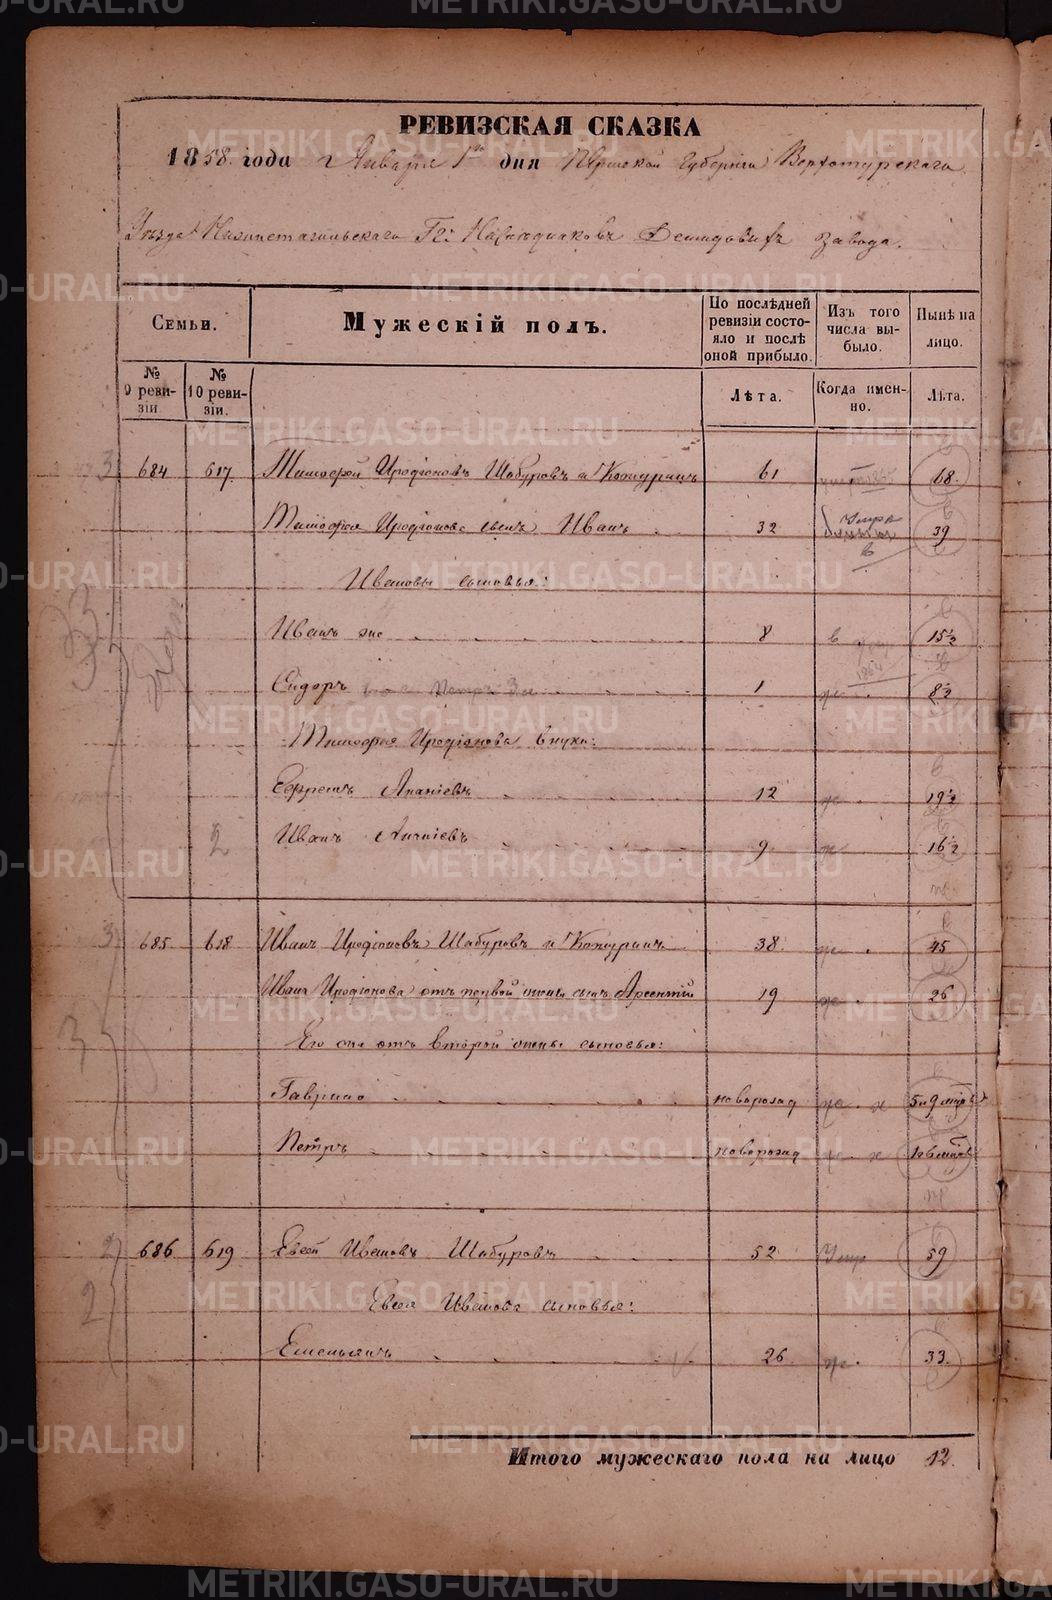 РЕВИЗСКАЯ СКАЗКА
1858 года г Января 1го дня Пермской Губерніи Верхотурскаго
Уѣзда Нижнетагильскаго Гг: Наслѣдниковъ Демидовыхъ завода.
Семьи.
Мужескій полъ.
По послѣдней ревизіи состояло и послѣ оной прибыло.
Изъ того числа выбыло.
Нынѣ на лицо.
№ 9 ревизіи
№ 10 ревизіи.
Лѣта.
Когда именно.
Лѣта.
684 617. Тимофей Иродіоновъ Шабуровъ и Кожуринъ 61 68.
Тимофея Иродіонова сынъ Иванъ 32 39
Ивановы сыновья:
Иванъ же 8 15½
Сидоръ 1 8½
Тимофея Иродіонова внуки:
Ефремъ Ананіевъ 12 19½
Иванъ Ананіевъ 9 16½
2
3 685. 618 Иванъ Иродіоновъ Шабуровъ и Кожуринъ 38. 45
Ивана Иродіонова отъ первой жены сынъ Арсентій 19 26
Его же отъ второй жены сыновья:
Гаврило новорожд 5 и 9 мцов
Петръ новорожд 1 и 6 мцов
686 619 Евсей Ивановъ Шабуровъ 52 Умер 59
Евсея Иванова сыновья:
Емельянъ 26 33.
Итого мужескаго пола на лицо 12.
METRIKI.GASO-URAL.RU